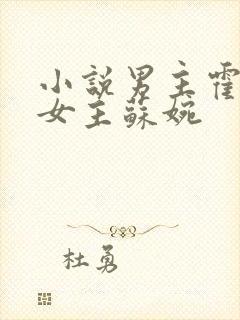 小說男主霍
女主蘇婉
杜勇